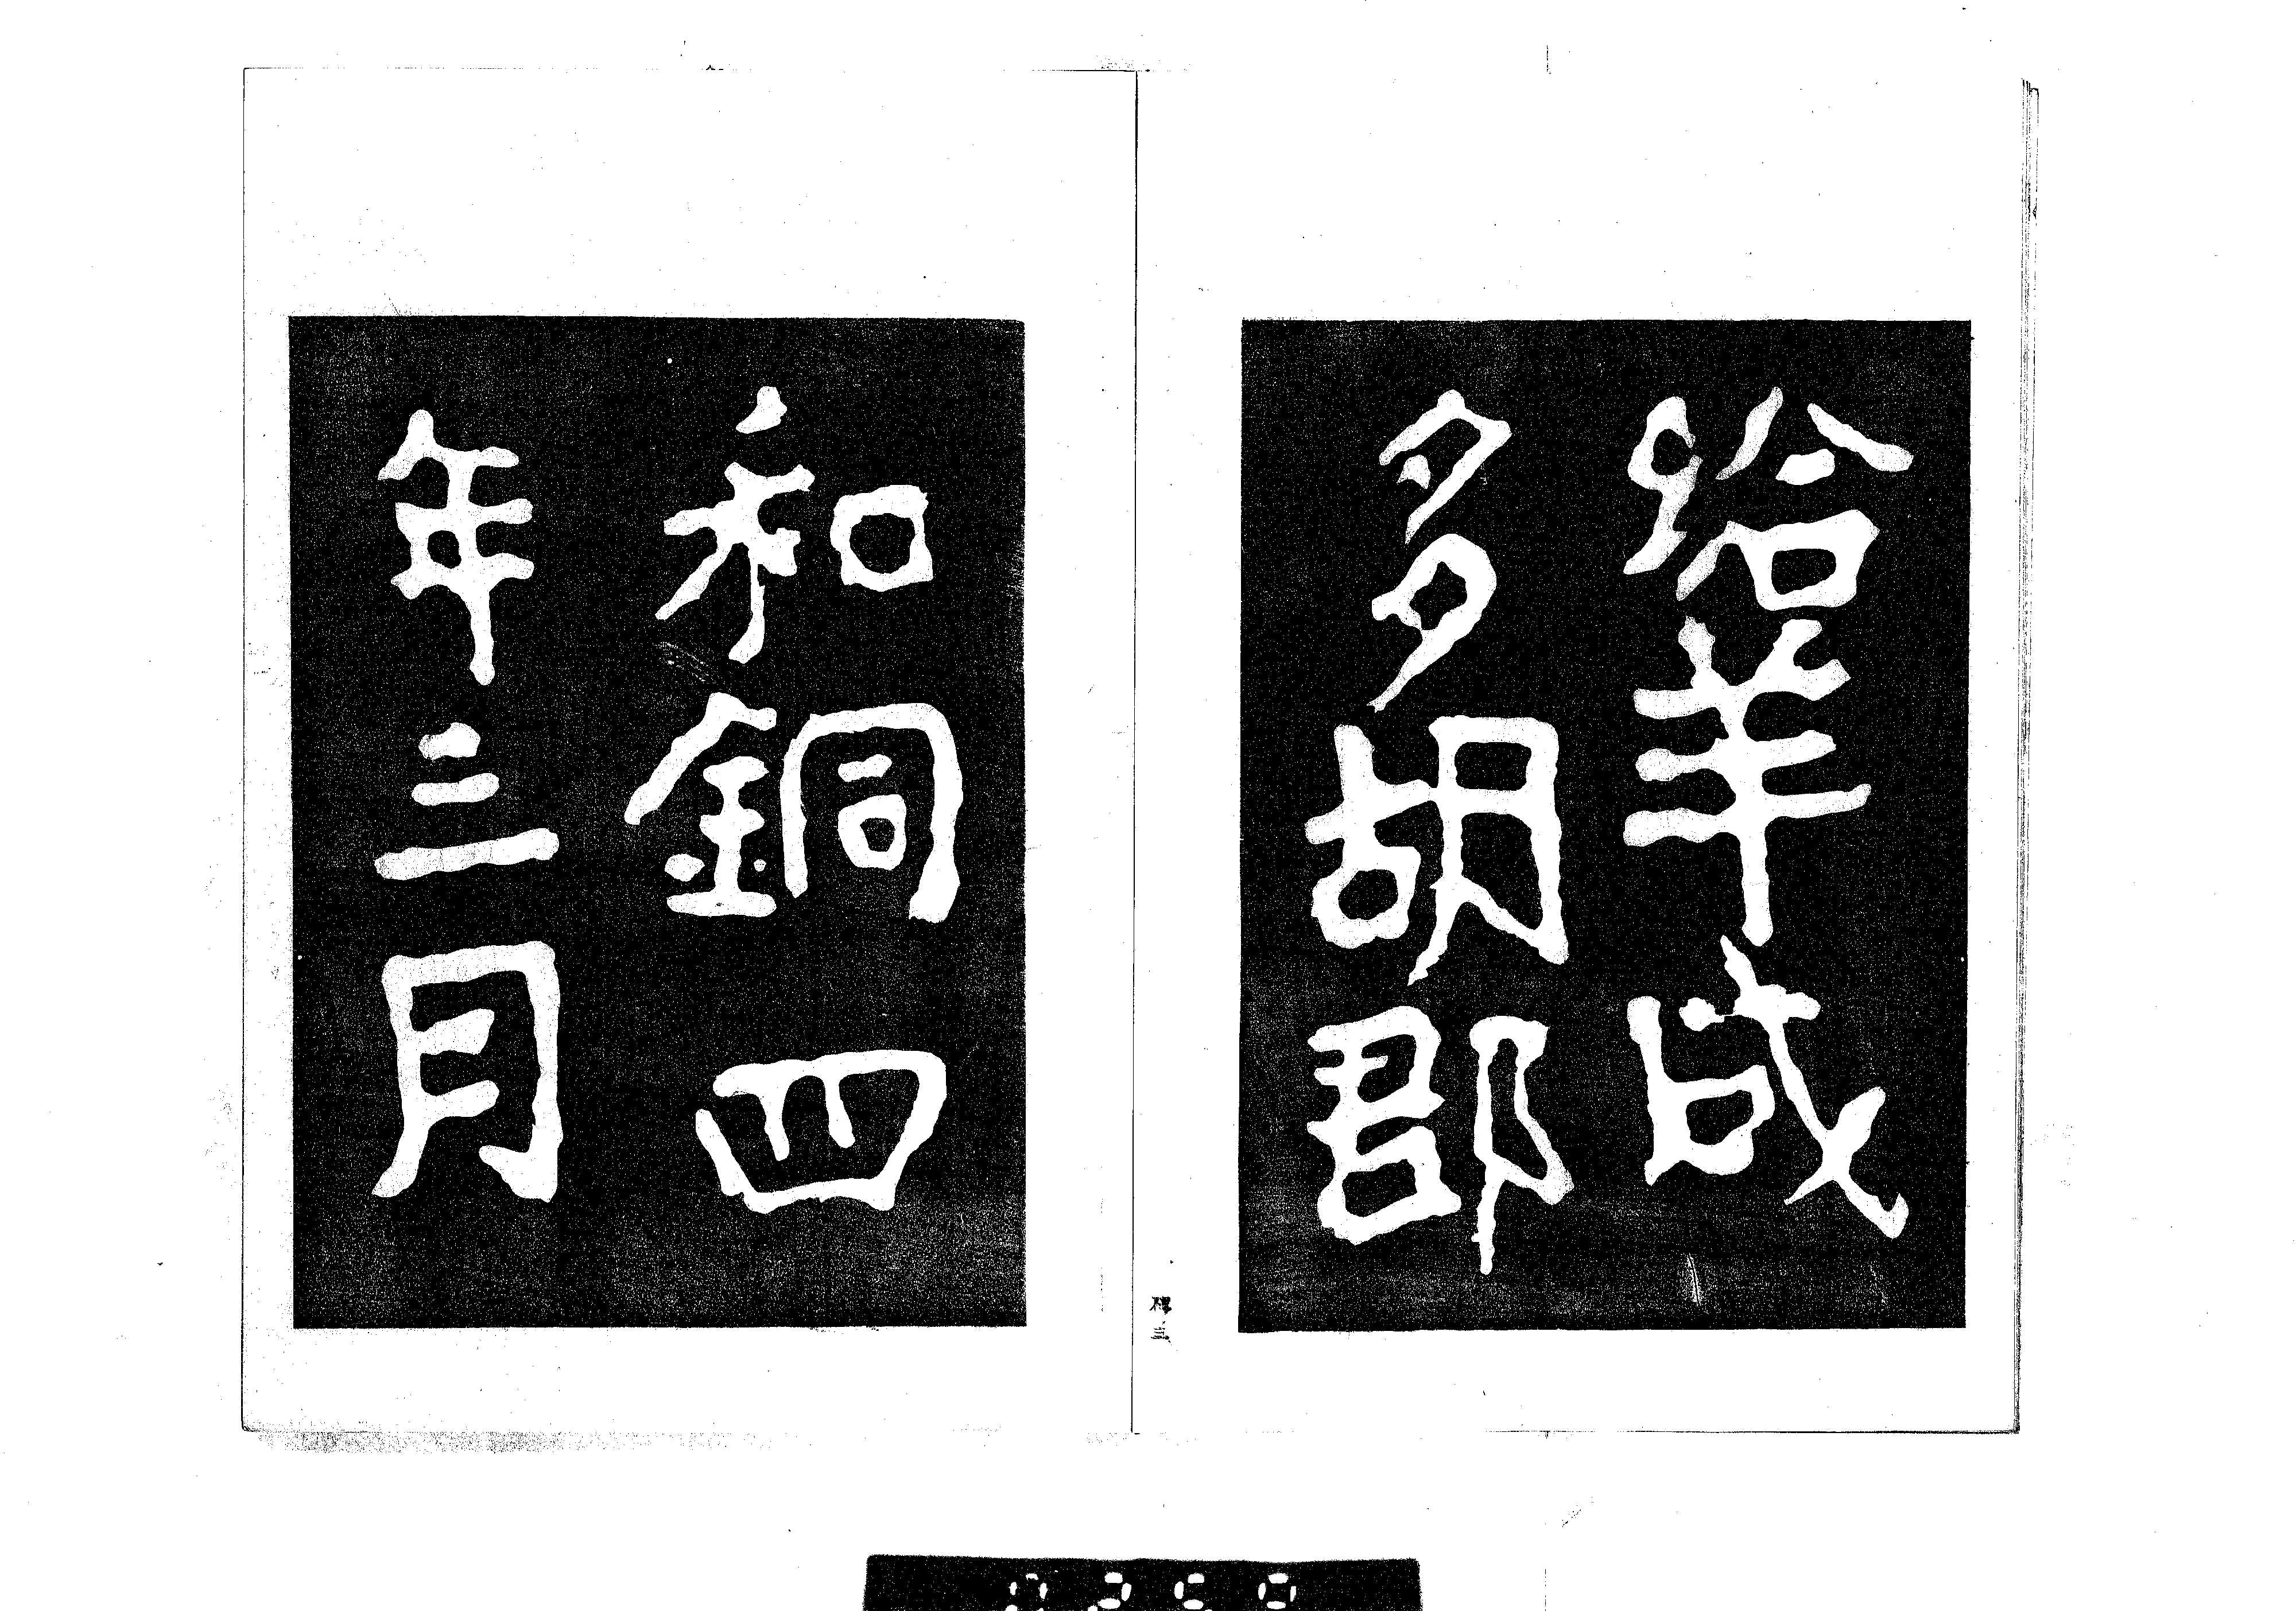 給羊成
多胡郡
和銅四
年三月
碑三